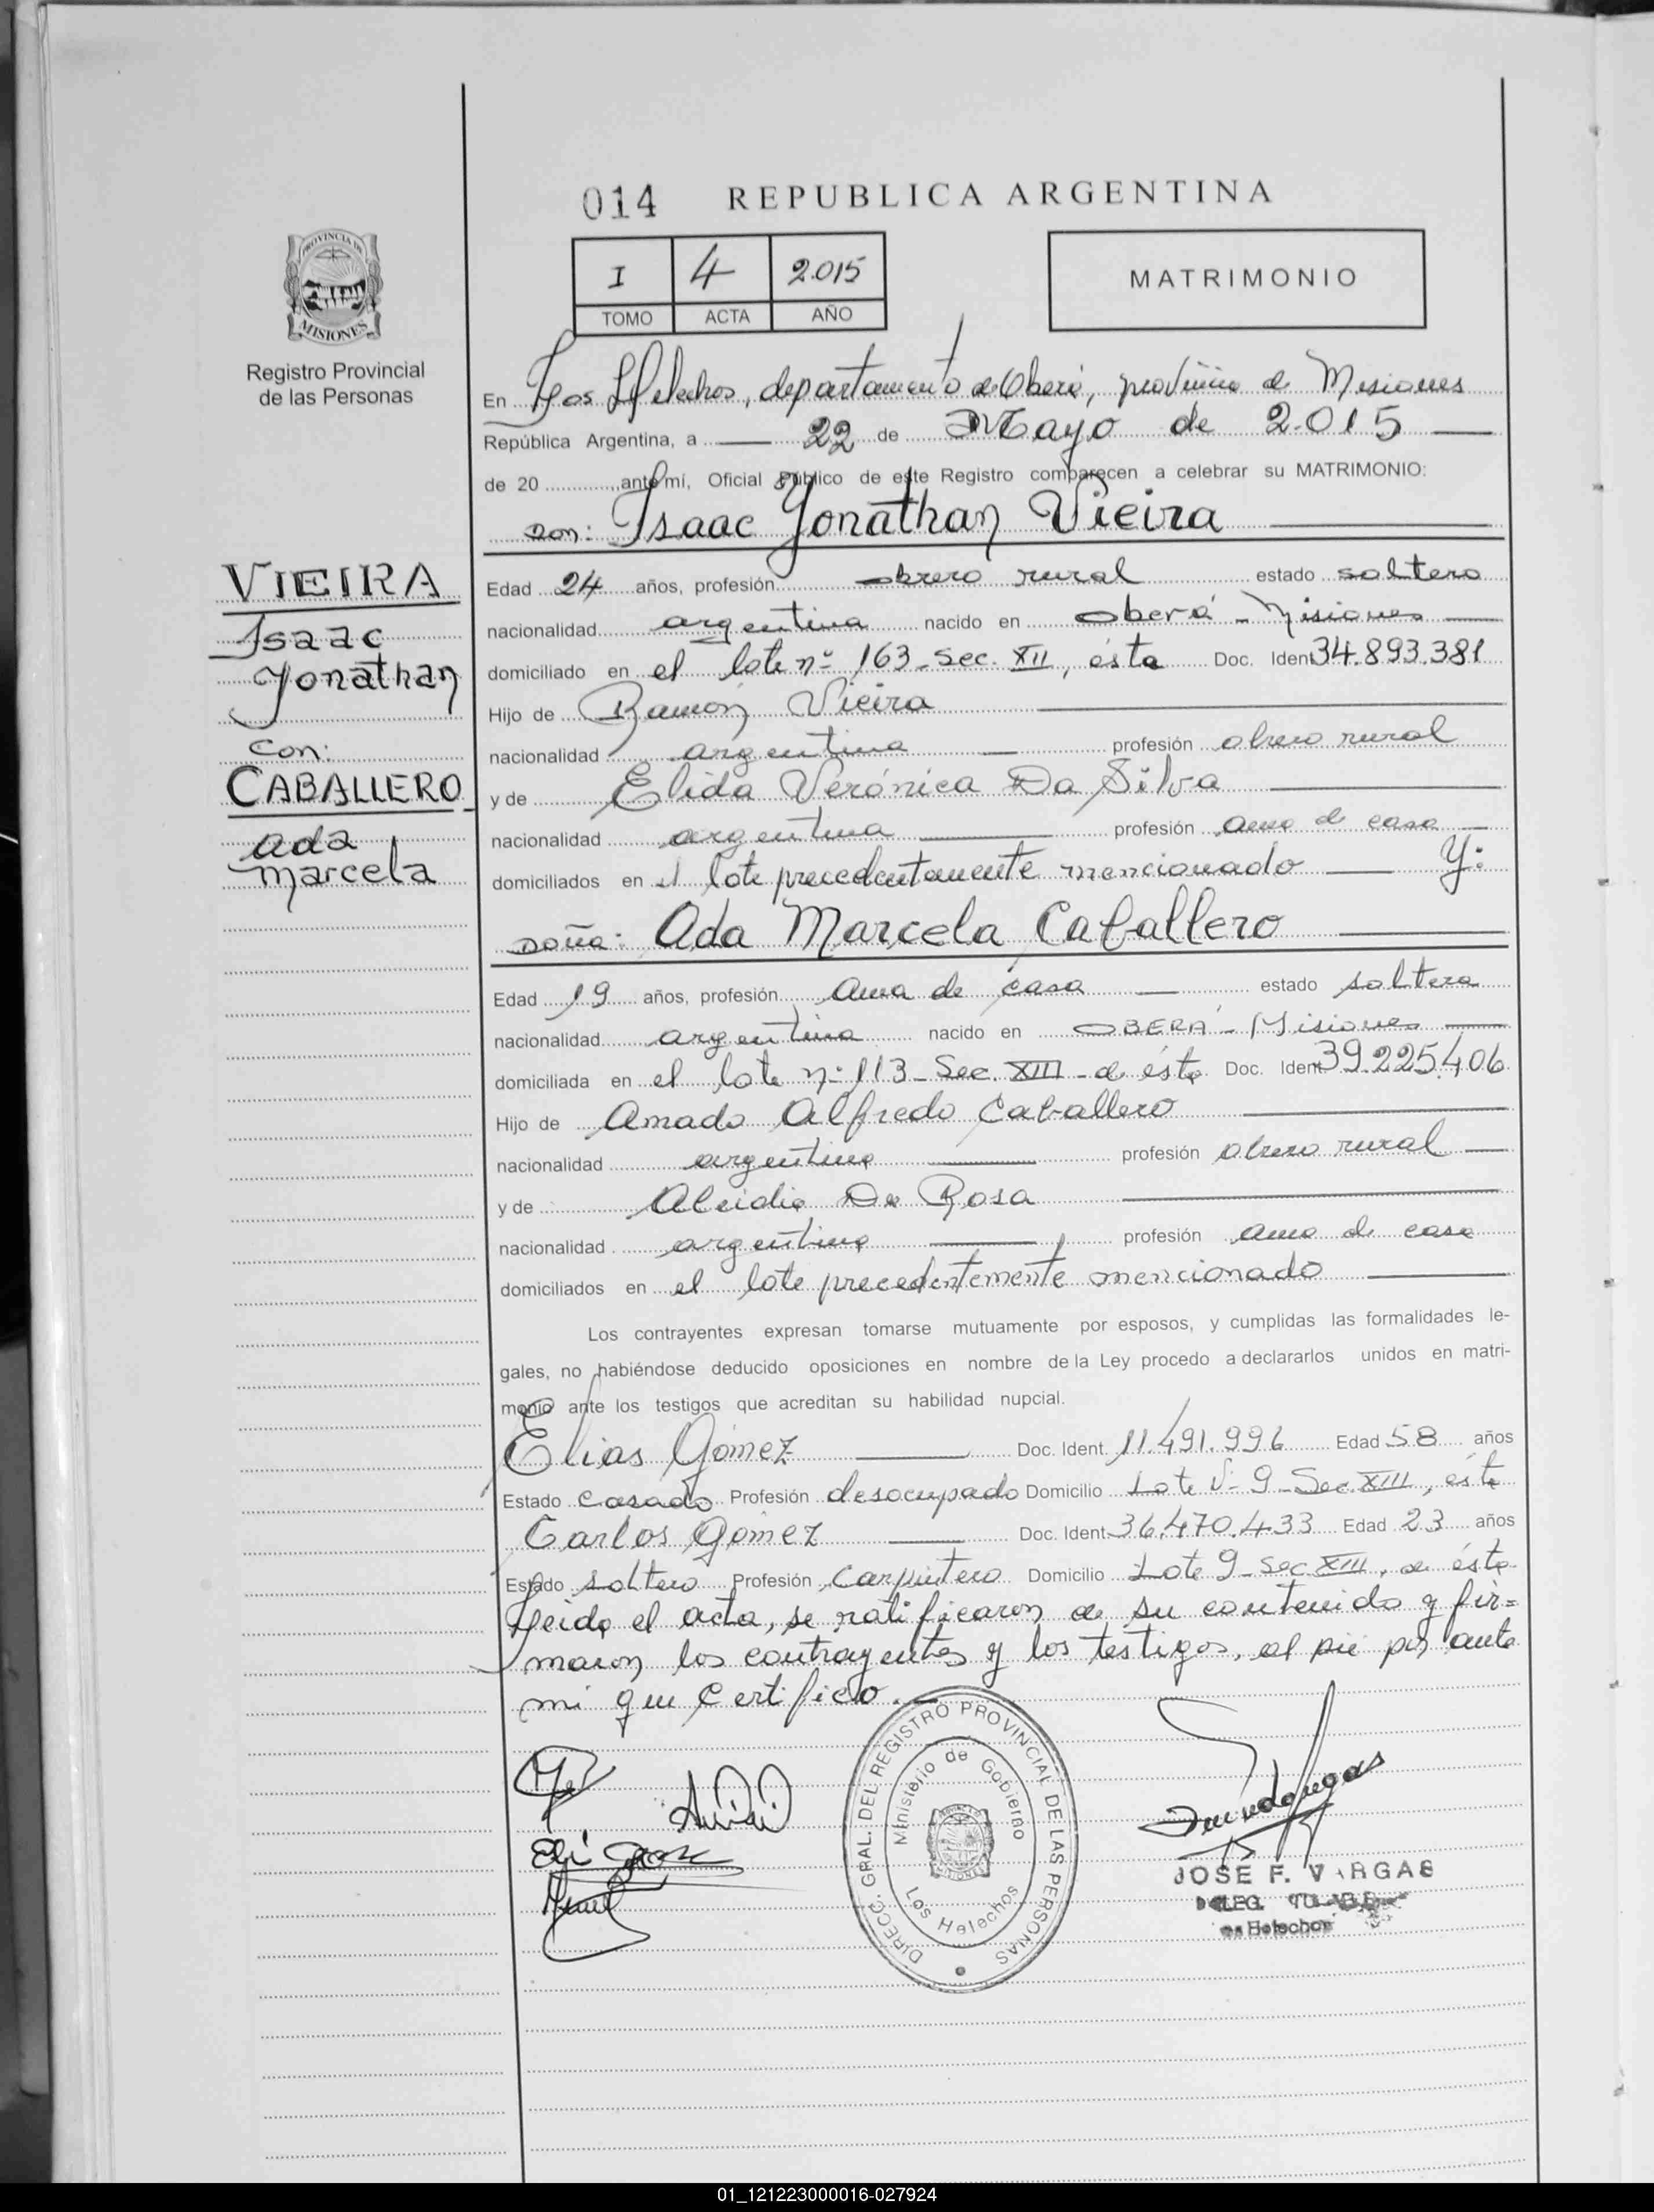 014 REPUBLICA ARGENTINA
PROVINCIA DE
MISIONES
I 4 2.015
TOMO ACTA AÑO
MATRIMONIO
Registro Provincial
de las Personas
En Los Helechos, departamento de Oberá, provincia de Misiones
República Argentina, a 22 de Mayo de 2.015
de 20 ante mí, Oficial Público de este Registro comparecen a celebrar su MATRIMONIO:
Don: Isaac Yonathan Vieira
VIEIRA
Isaac
Yonathan
con:
CABALLERO
Ada
Marcela
Edad 24 años, profesión obrero rural estado soltero
nacionalidad argentina nacido en Oberá - Misiones
domiciliado en el lote nº 163 - Sec. XII, ésta Doc. Ident 34.893.381
Hijo de Ramón Vieira
nacionalidad argentina profesión obrero rural
y de Elida Verónica Da Silva
nacionalidad argentina profesión ama de casa
domiciliados en el lote precedentamente mencionado Y:
Doña: Ada Marcela Caballero
Edad 19 años, profesión ama de casa estado soltera
nacionalidad argentina nacido en OBERÁ - Misiones
domiciliada en el lote nº 113 - Sec. XIII - de ésta Doc. Ident 39.225.406
Hijo de Amado Alfredo Caballero
nacionalidad argentina profesión obrero rural
y de Alcidia Da Rosa
nacionalidad argentina profesión ama de casa
domiciliados en el lote precedentemente mencionado
Los contrayentes expresan tomarse mutuamente por esposos, y cumplidas las formalidades le-
gales, no habiéndose deducido oposiciones en nombre de la Ley procedo a declararlos unidos en matri-
monio ante los testigos que acreditan su habilidad nupcial.
Elias Gómez Doc. Ident. 11.491.996 Edad 58 años
Estado casado Profesión desocupado Domicilio Lote Nº 9 - Sec. XIII, ésta
Carlos Gómez Doc. Ident. 36.470.433 Edad 23 años
Estado soltero Profesión Carpintero Domicilio Lote 9 - Sec XIII, de ésta
Leida el acta, se ratificaron de su contenido y fir=
maron los contrayentes y los testigos, al pie por ante
mi que certifico.
DIRECC. GRAL. DEL REGISTRO PROVINCIAL DE LAS PERSONAS
Ministerio de Gobierno
Los Helechos
JOSE F. VARGAS
DELEG. TITULAR
Los Helechos
01_121223000016-027924